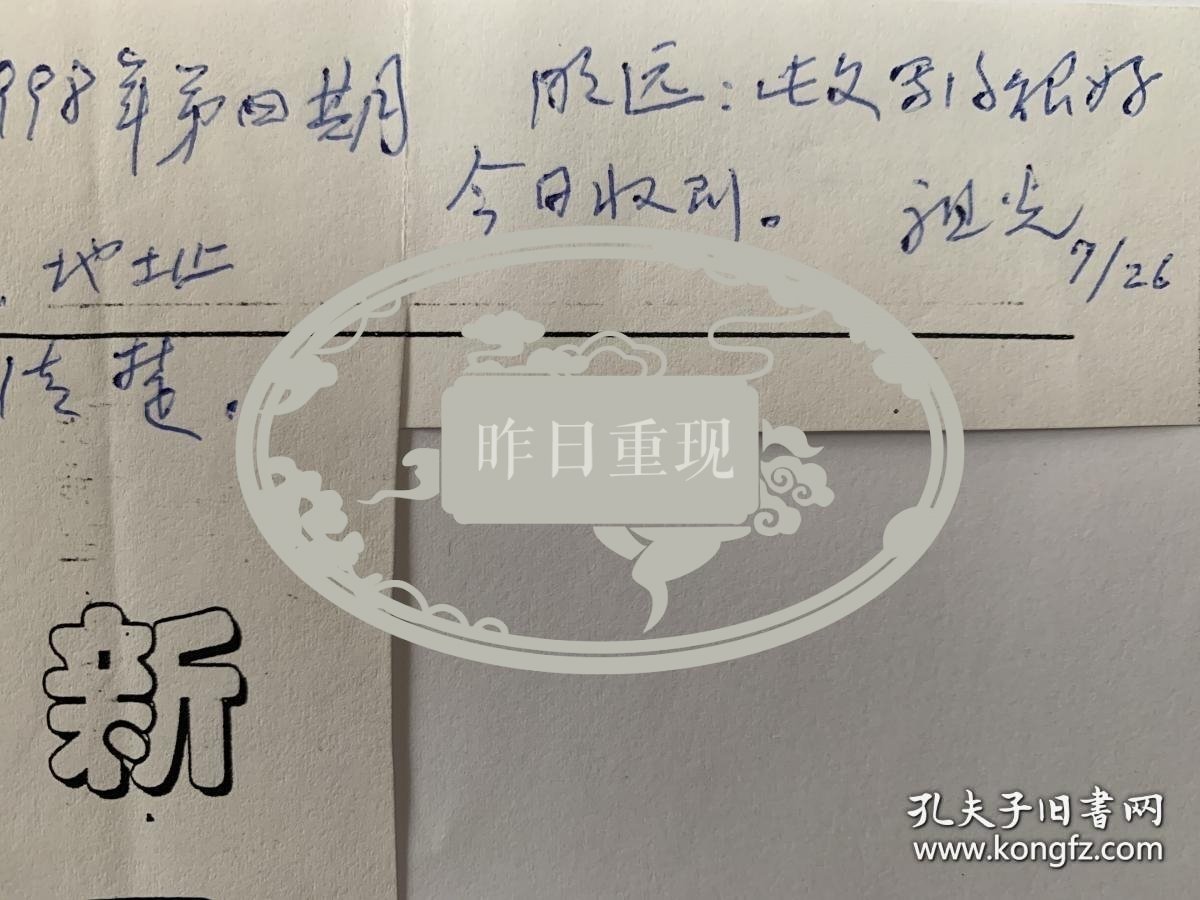 998年第四期
明远：此文写得很好
今日收到。 祖光 7/26
地址
清楚.
昨日重现
新
孔夫子旧書网
www.kongfz.com